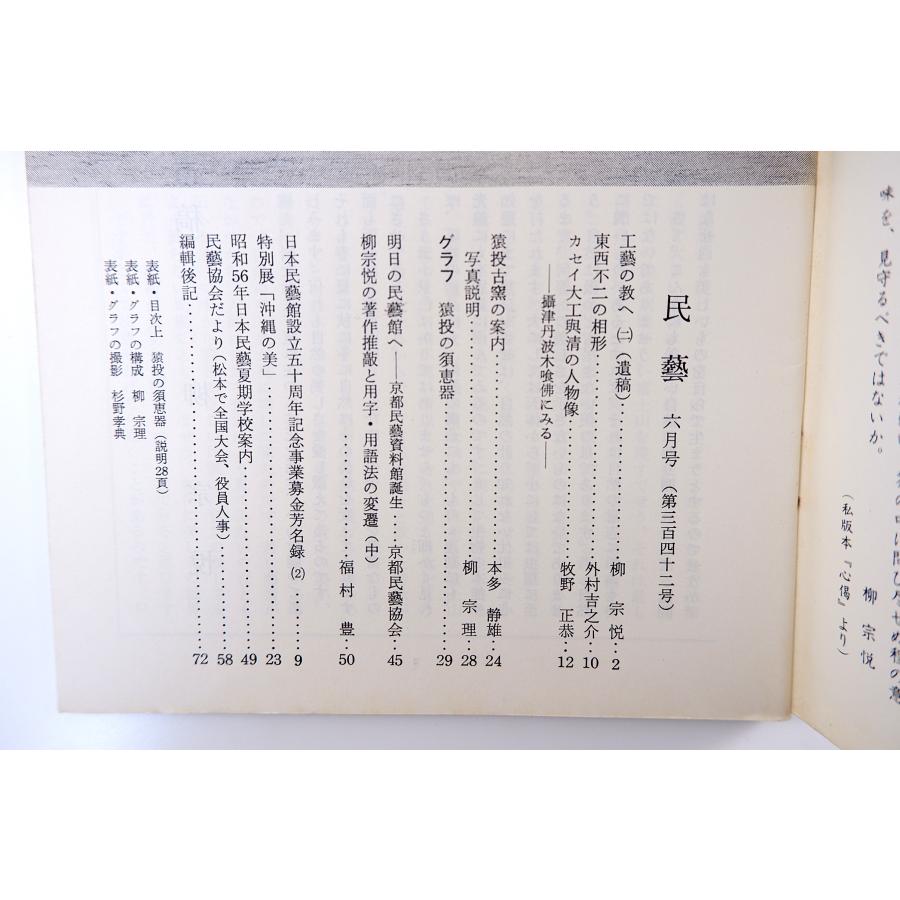 味を、見守るべきではないか。
柳宗悦
(私版本『心偈』より)
民藝 六月号 (第三百四十二号)
工藝の教へ ㈡ (遺稿)……柳宗悦…2
東西不二の相形……外村吉之介…10
カセイ大工與清の人物像……牧野正恭…12
――攝津丹波木喰佛にみる――
猿投古窯の案内……本多静雄…24
写真説明……柳宗理…28
グラフ 猿投の須恵器……29
明日の民藝館へ――京都民藝資料館誕生……京都民藝協会…45
柳宗悦の著作推敲と用字・用語法の変遷 (中)
……福村豊…50
日本民藝館設立五十周年記念事業募金芳名録 (2)……9
特別展「沖縄の美」……23
昭和56年日本民藝夏期学校案内……49
民藝協会だより (松本で全国大会、役員人事)……58
編輯後記……72
表紙・目次上 猿投の須恵器 (説明28頁)
表紙・グラフの構成 柳宗理
表紙・グラフの撮影 杉野孝典